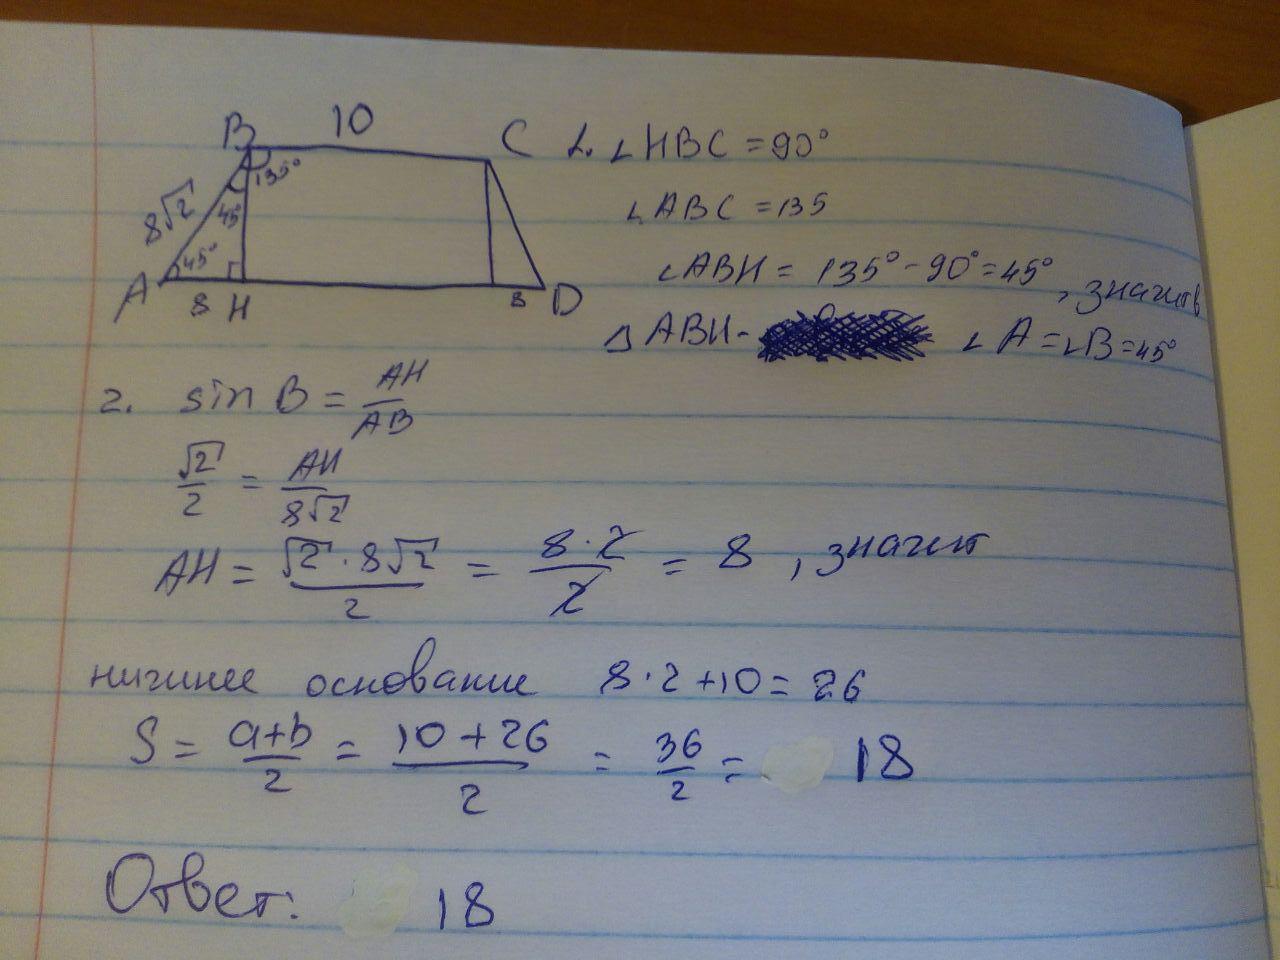 B 10 C
8√2 135°
45°
45°
A 8 H 8 D
1. ∠HBC = 90°
∠ABC = 135
∠ABH = 135° - 90° = 45°, значит в
△ABH - ∠A = ∠B = 45°
2. sin B = AH/AB
√2/2 = AH/8√2
AH = √2·8√2/2 = 8·2/2 = 8, значит
нижнее основание 8·2+10 = 26
S = a+b/2 = 10+26/2 = 36/2 = 18
Ответ: 18